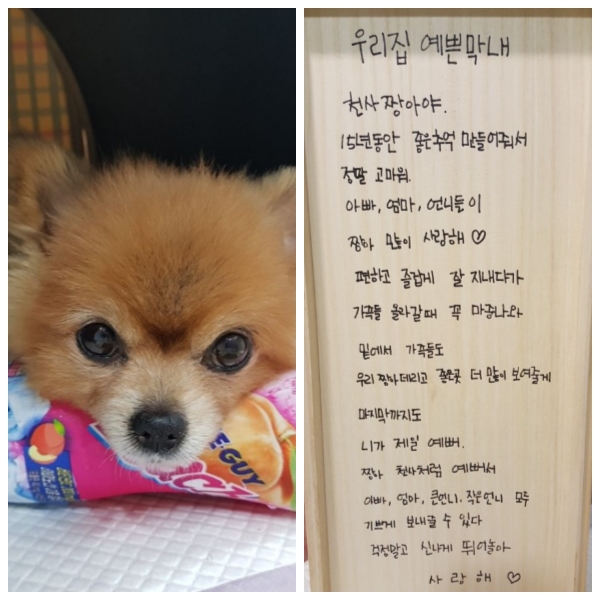 우리집 예쁜막내
천사짱아야.
15년동안 좋은추억 만들어줘서
정말 고마워.
아빠, 엄마, 언니들이
짱아 많이 사랑해 ♡
편하고 즐겁게 잘 지내다가
가족들 올라갈때 꼭 마중나와
밑에서 가족들도
우리 짱아데리고 좋은곳 더 많이 보여줄게
마지막까지도
니가 제일 예뻐.
짱아 천사처럼 예뻐서
아빠, 엄마, 큰언니, 작은언니 모두
기쁘게 보내줄 수 있다
걱정말고 신나게 뛰어놀아
사랑해 ♡
E·GUY